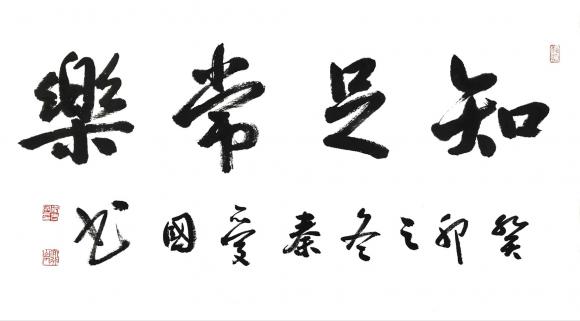 知足常樂
癸卯之冬秦爱國书